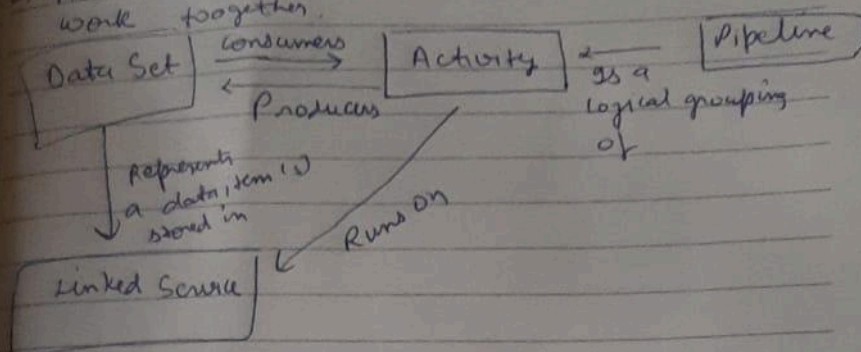 work toogether.
Data Set
Consumers
Producers
Activity
Is a
Logical grouping
of
Pipeline
Represents
a data item(s)
stored in
Runs On
Linked Source